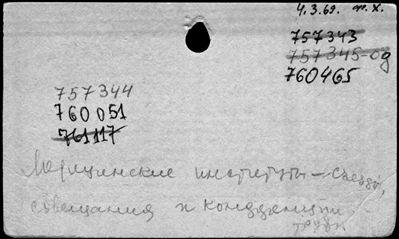 4.3.69. т.х.
757343
757345-од
760465
757344
760051
761117
Медицинские институты – съезды,
совещания и конференции.
труды